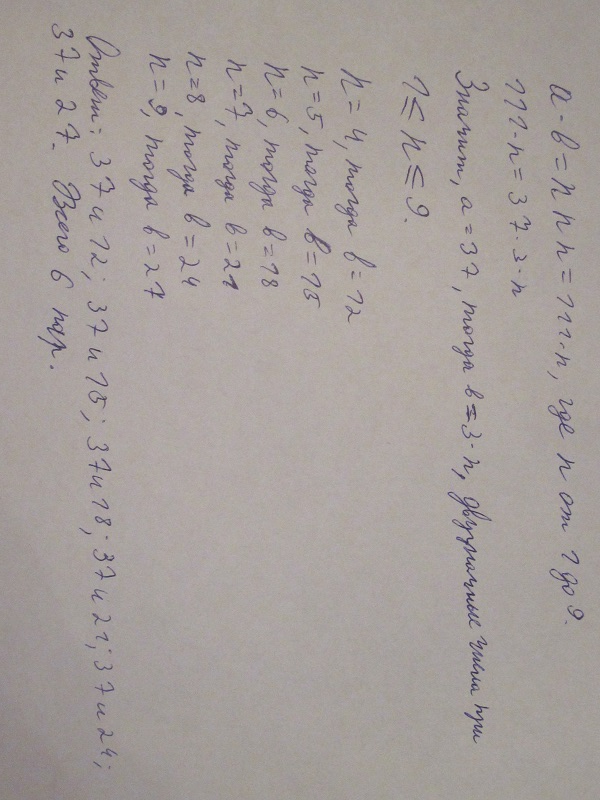 a·b = n n n = 111·n, где n от 1 до 9.
111·n = 37·3·n
Значит, a = 37, тогда b = 3·n, двузначные числа при
1 ≤ n ≤ 9.
n = 4, тогда b = 12
n = 5, тогда b = 15
n = 6, тогда b = 18
n = 7, тогда b = 21
n = 8, тогда b = 24
n = 9, тогда b = 27
Ответ: 37 и 12; 37 и 15; 37 и 18; 37 и 21; 37 и 24;
37 и 27. Всего 6 пар.